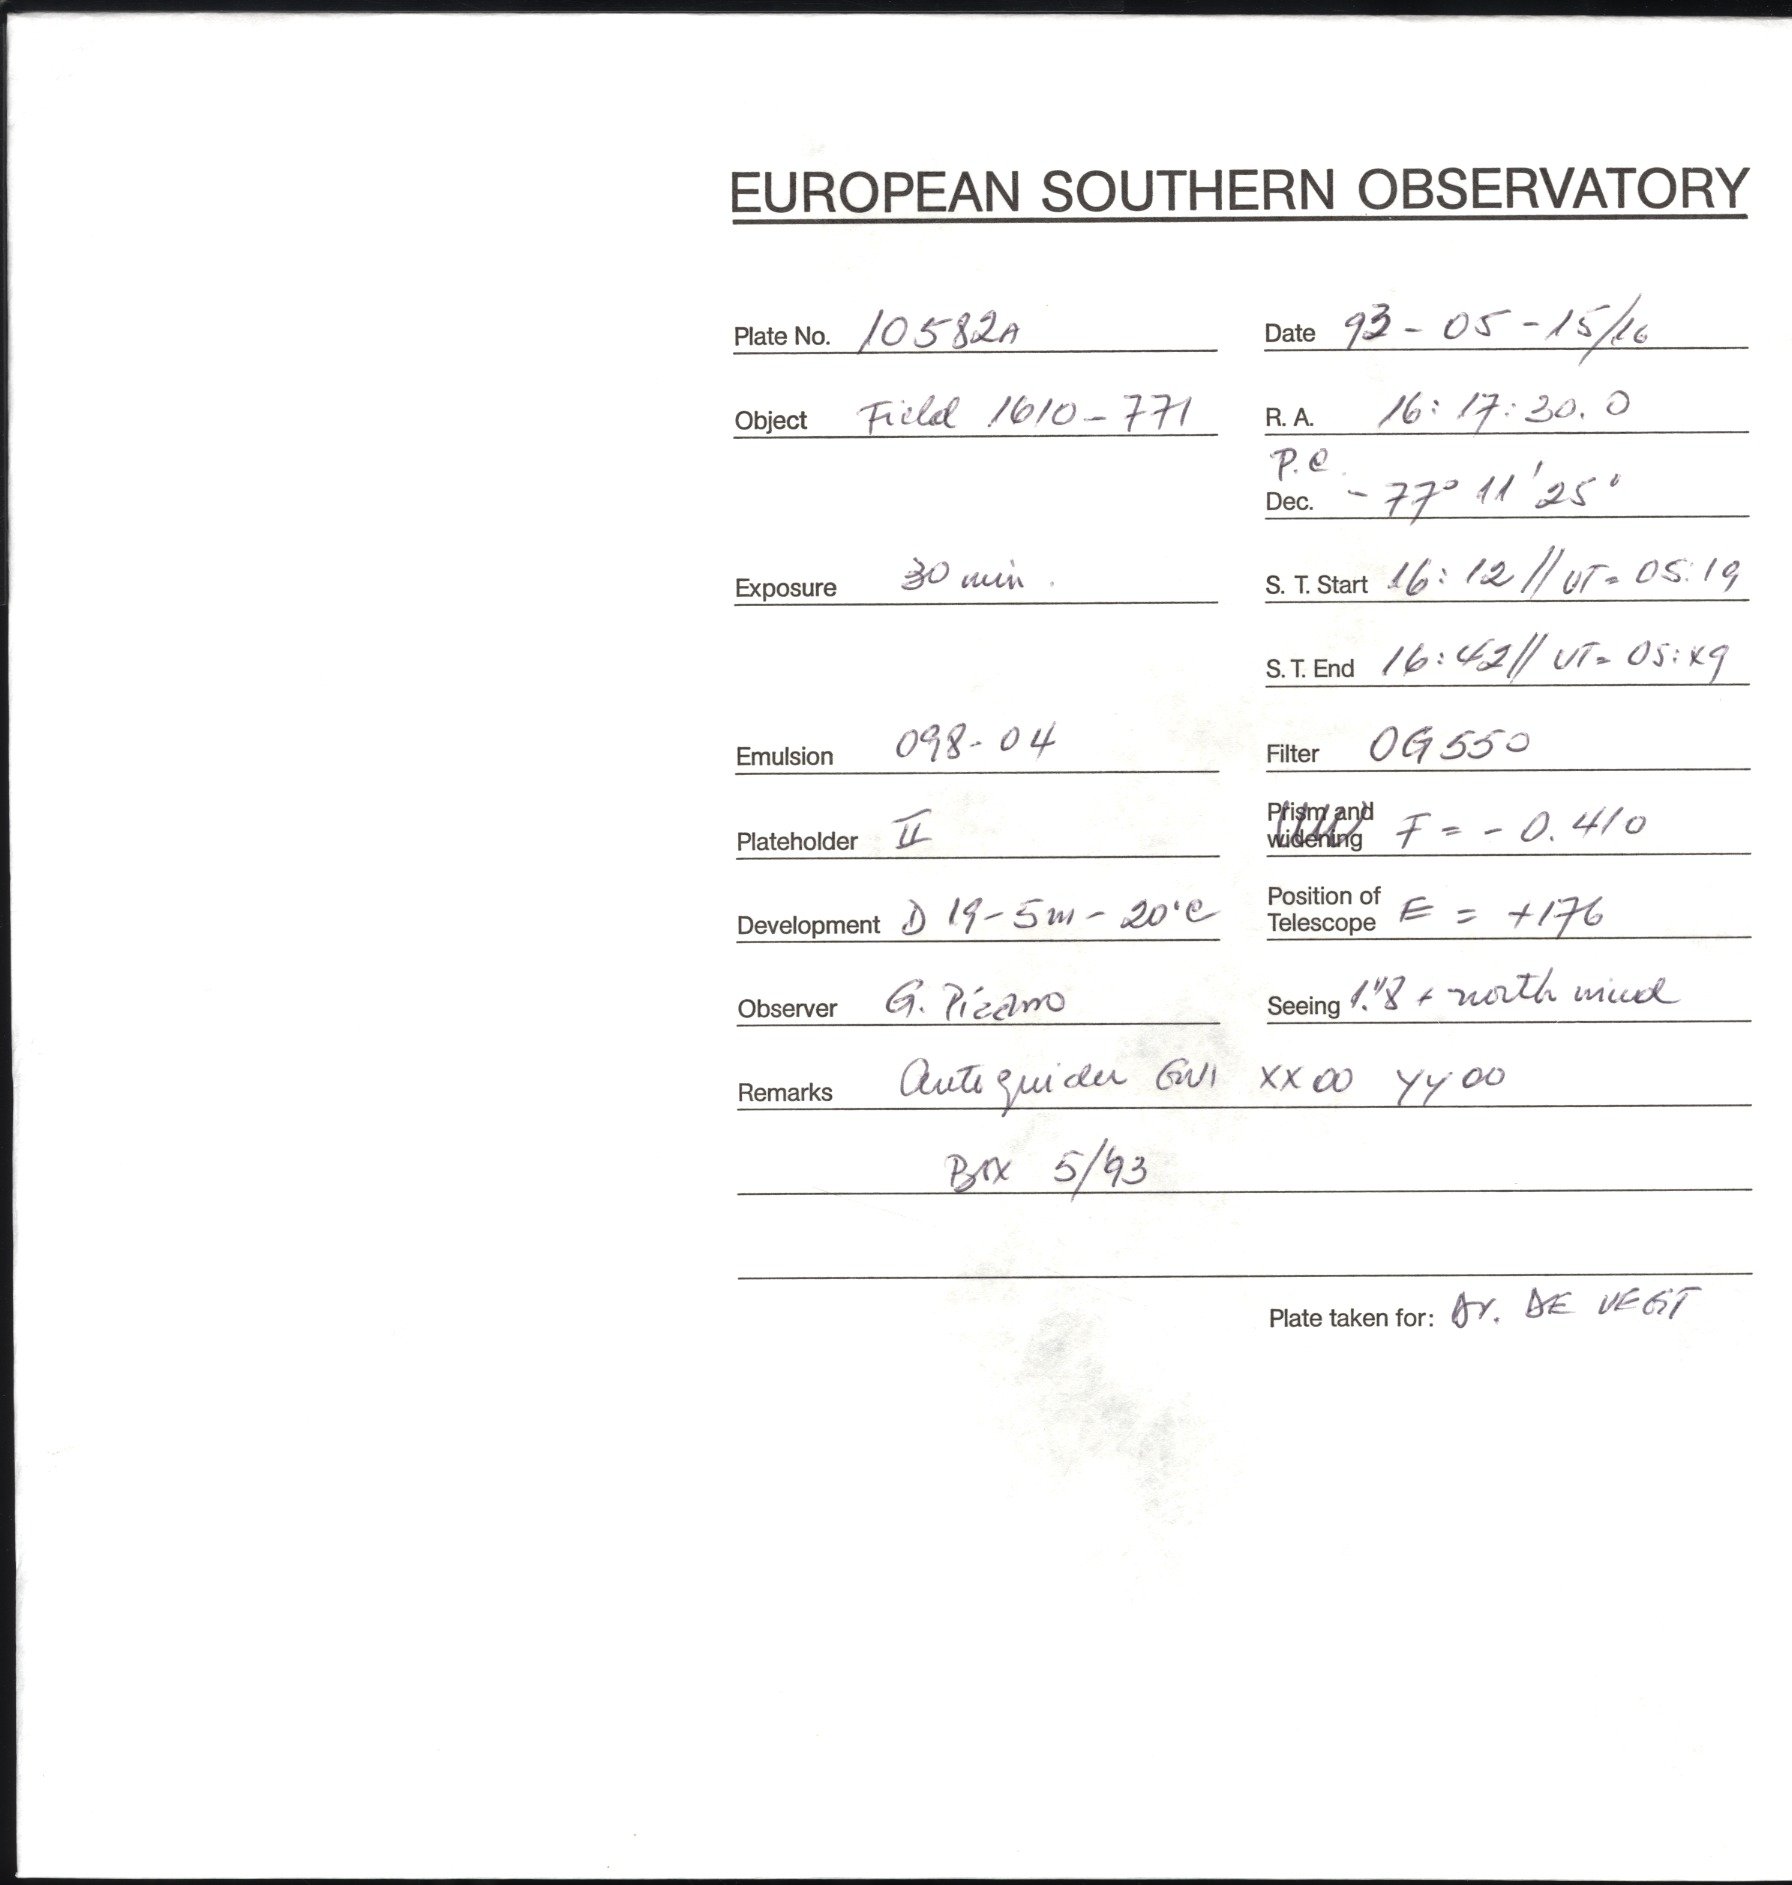 EUROPEAN SOUTHERN OBSERVATORY
Plate No. 10582A Date 93-05-15/16
Object Field 1610-771 R. A. 16:17:30.0
P.C.
Dec. -77° 11' 25"
Exposure 30 min. S. T. Start 16:12 // UT= 05:19
S. T. End 16:42 // UT= 05:49
Emulsion 098-04 Filter OG550
Plateholder II Prism and widening F = -0.410
Development D 19-5m-20°C Position of Telescope E = +176
Observer G. Pizarro Seeing 1."8 + north wind
Remarks Autoguider GW1 XX00 YY00
Box 5/93
Plate taken for: Dr. DE VEGT